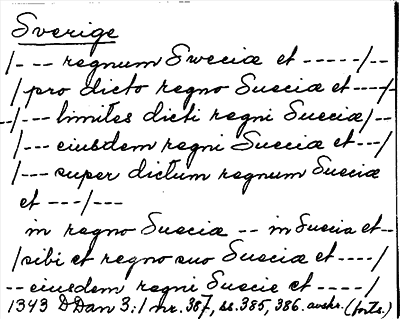 Sverige
/--- regnum Sweciæ et -----/--
/pro dicto regno Sueciæ et----/-
--/--- limites dicti regni Sueciæ/--
/--- eiusdem regni Sueciæ et---/
/--- super dictum regnum Sueciæ
et ---/---
in regno Sueciæ -- in Suecia et--
/sibi et regno suo Sueciæ et----/
-- eiusdem regni Suecie et ----/
1343 DDan 3:1 nr. 387, ss. 385, 386. avskr. (forts.)